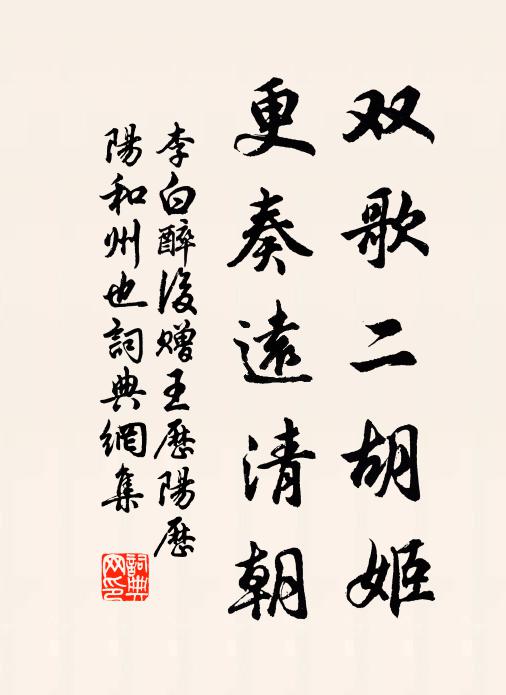 双歌二胡姬
更奏遠清朝
李白醉後贈王歷陽歷
陽和州也詞典網集
詞典网印